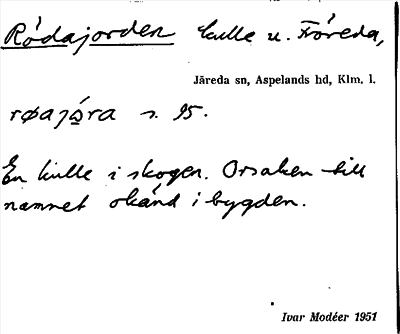 Rödajorden kulle u. Föreda,
Järeda sn, Aspelands hd, Klm. l.
røajọ́ra s. 95.
En kulle i skogen. Orsaken till
namnet okänd i bygden.
Ivar Modéer 1951